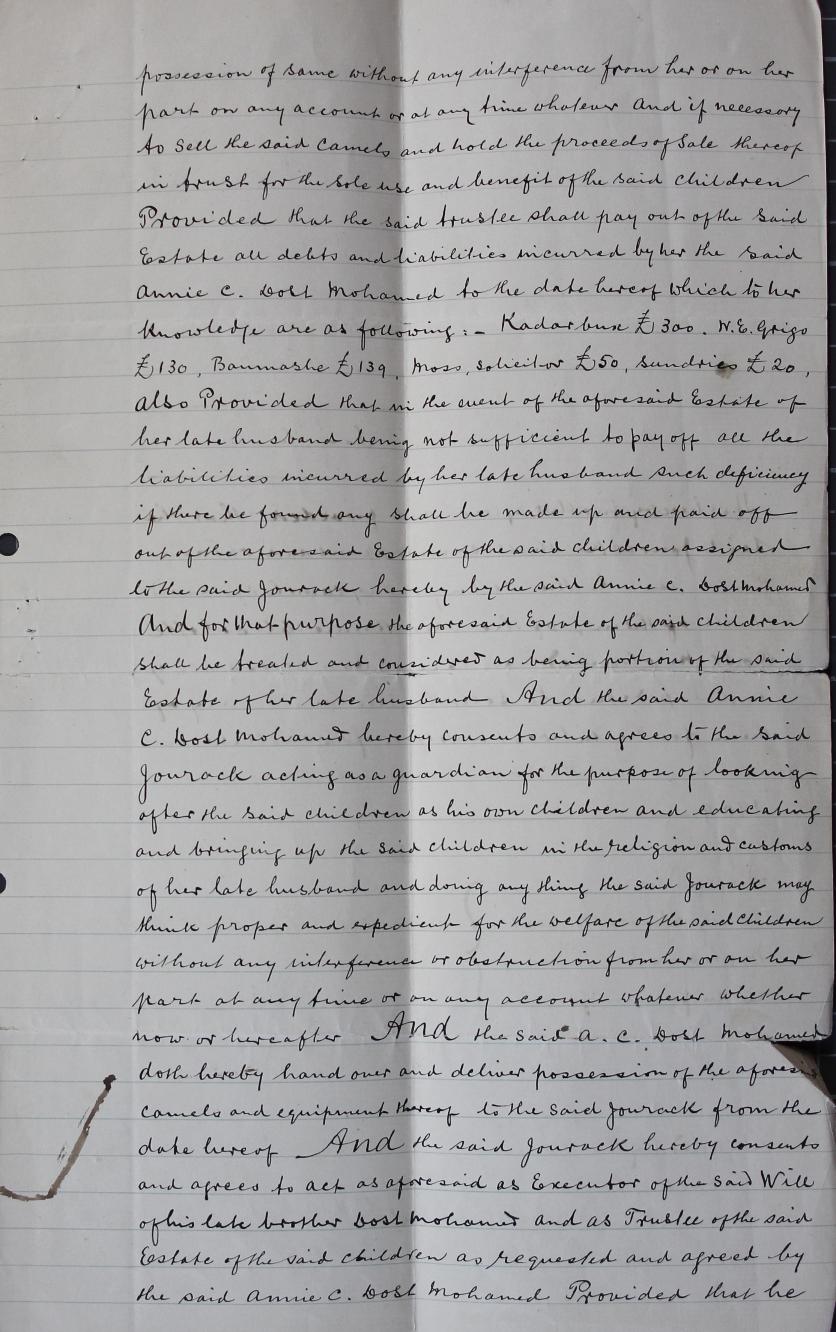 possession of same without any interference from her or on her
part on any account or at any time whatever And if necessary
to sell the said Camels and hold the proceeds of Sale thereof
in trust for the sole use and benefit of the said children
Provided that the said trustee shall pay out of the said
Estate all debts and liabilities incurred by her the said
Annie C. Dost Mohamed to the date hereof which to her
knowledge are as following:- Kadarbux £300. W.E. Grigo
£130, Banmashe £139, Moss, solicitor £50, sundries £20,
also Provided that in the event of the aforesaid Estate of
her late husband being not sufficient to pay off all the
liabilities incurred by her late husband such deficiency
if there be found any shall be made up and paid off
out of the aforesaid Estate of the said children assigned
to the said Jourack hereby by the said Annie C. Dost Mohamed
And for that purpose the aforesaid Estate of the said children
shall be treated and considered as being portion of the said
Estate of her late husband And the said Annie
C. Dost Mohamed hereby consents and agrees to the said
Jourack acting as a guardian for the purpose of looking
after the said children as his own children and educating
and bringing up the said children in the religion and customs
of her late husband and doing any thing the said Jourack may
think proper and expedient for the welfare of the said children
without any interference or obstruction from her or on her
part at any time or on any account whatever whether
now or hereafter And the said A. C. Dost Mohamed
doth hereby hand over and deliver possession of the aforesaid
camels and equipment thereof to the said Jourack from the
date hereof And the said Jourack hereby consents
and agrees to act as aforesaid as Executor of the said Will
of his late brother Dost Mohamed and as Trustee of the said
Estate of the said children as requested and agreed by
the said Annie C. Dost Mohamed Provided that he